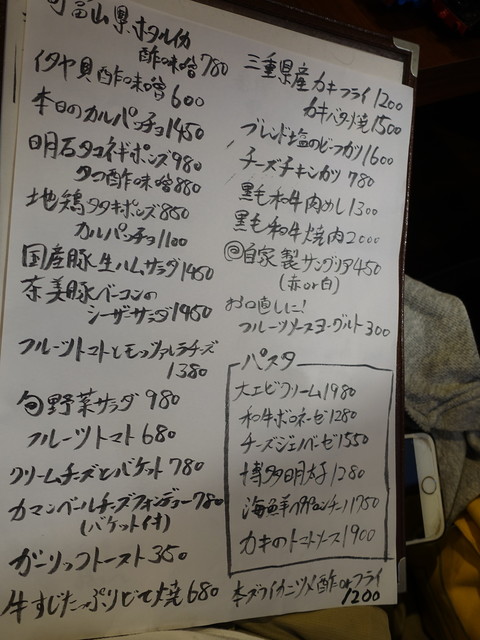 富山県ホタルイカ
酢味噌 780
イタヤ貝酢味噌 600
本日のカルパッチョ 1450
明石タコネギポンズ 980
タコ酢味噌 880
地鶏タタキポンズ 850
カルパッチョ 1100
国産豚生ハムサラダ 1450
奈美豚ベーコンの
シーザーサラダ 1450
フルーツトマトとモッツァレラチーズ
1380
旬野菜サラダ 980
フルーツトマト 680
クリームチーズとバケット 780
カマンベールチーズフォンデュー 780
(バケット付)
ガーリックトースト 350
牛すじたっぷりどて焼 680
三重県産カキフライ 1200
カキバタ焼 1500
ブレンド塩のビーフカツ 1600
チーズチキンカツ 780
黒毛和牛肉めし 1300
黒毛和牛焼肉 2000
@自家製サングリア 450
(赤or白)
お口直しに!
フルーツソースヨーグルト 300
パスタ
大エビクリーム 1980
和牛ボロネーゼ 1280
チーズジェノベーゼ 1550
博多明太子 1280
海鮮ペペロンチーノ 1750
カキのトマトソース 1900
本ズワイガニツメ酢orフライ
1200